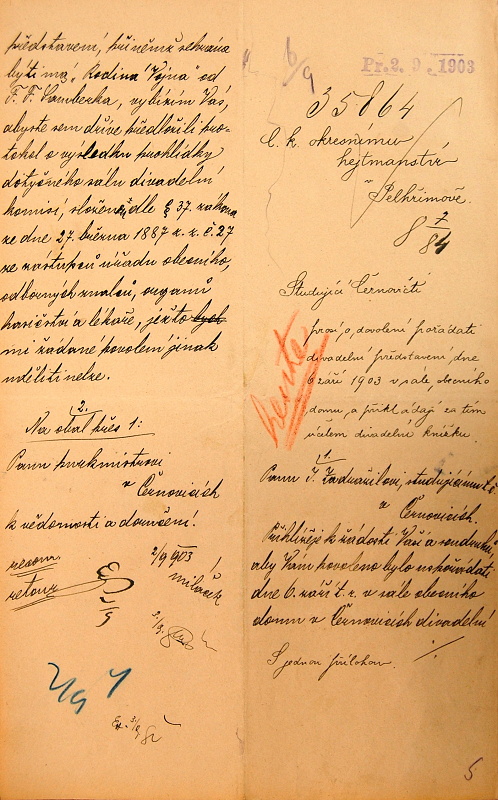 Pr. 2. 9. 1903
6/9
35864
C. k. okresnímu
hejtmanství
v Pelhřimově.
8 7/84
Studující Černovičtí
prosí o dovolení pořádati
divadelní představení, dne
6 září 1903 v sále, obecního
domu, a přikládají za tím
účelem divadelní knížku.
heute
1.
Panu T. Zadražilovi, studujícímu
v Černovicích.
Přihlížeje k žádosti Vaší a
aby Vám povoleno bylo uspořádati
dne 6. září t. r. v sále obecního
domu v Černovicích divadelní
S jednou přílohou.
5
představení, při němž sehrána
býti má „Rodinná Vojna" od
F. F. Šamberka, vybízím Vás,
abyste sem dříve předložili pro-
tokol o výsledku prohlídky
dotyčného sálu divadelní
komisí, složené dle § 37. zákona
ze dne 27. března 1887 z. z. č. 27
ze zástupců úřadu obecního,
odborných znalců, orgánů
hasičstva a lékaře, ježto bych
mi žádané povolení jinak
uděliti nelze.
2.
Na obal přes 1:
Panu purkmistrovi
v Černovicích
k vědomosti a doručení.
2/9 903
retour
3/9
2/9
Ex. 3/9